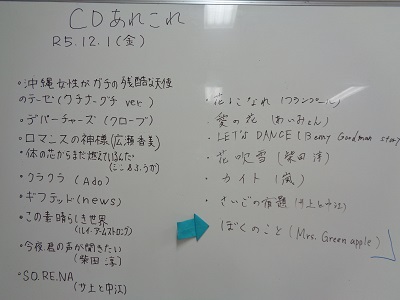 CDあれこれ
R5.12.1(金)
・沖縄女性がガチの残酷な天使
のテーゼ(ウチナーグチ ver)
・デパーチャーズ(グローブ)
・ロマンスの神様(広瀬香美)
・体の芯からまだ燃えているんだ
(ここ&ふうか)
・クラクラ(Ado)
・ギフテッド(news)
・この素晴らしき世界
(ルイ・アームストロング)
・今夜君の声が聞きたい
(柴田淳)
・SO.RE.NA
(サ上と中江)
・花よこなれ
・葵の花(あいみょん)
・LET'S DANCE(Benny Goodman story)
・花吹雪(柴田淳)
・カイト(嵐)
・さいごの宿題(サ上と中江)
・ぼくのこと(Mrs. Green apple)